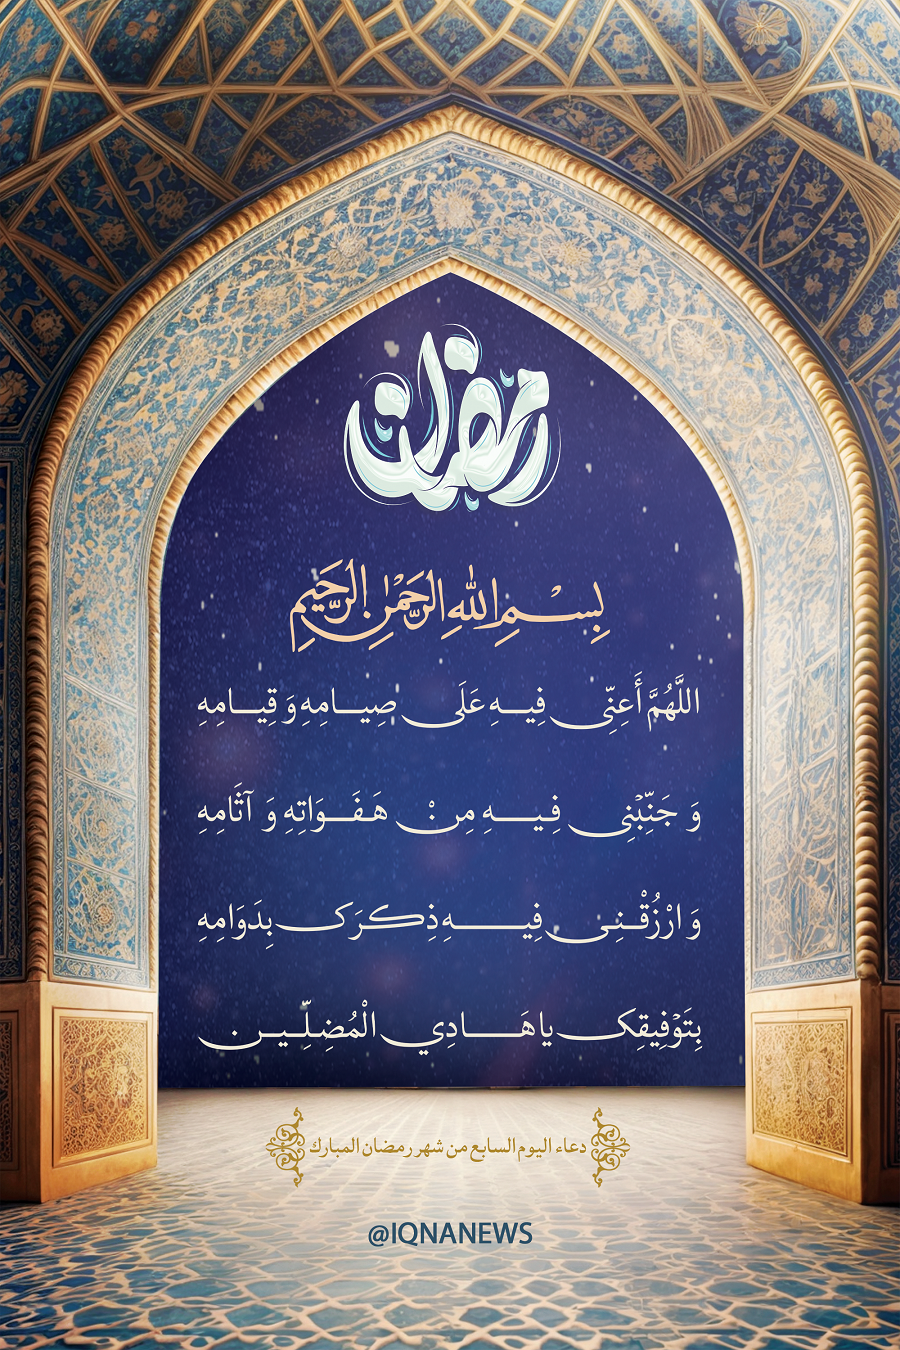 رمضان
بِسْمِ اللهِ الرَّحْمٰنِ الرَّحِيمِ
اللَّهُمَّ أَعِنِّي فِيهِ عَلَى صِيامِهِ وَ قِيامِهِ
وَ جَنِّبْنِي فِيهِ مِنْ هَفَوَاتِهِ وَ آثَامِهِ
وَ ارْزُقْنِي فِيهِ ذِكرَک بِدَوَامِهِ
بِتَوْفِيقِک يا هَادِي الْمُضِلِّين
دعاء اليوم السابع من شهر رمضان المبارك
@IQNANEWS